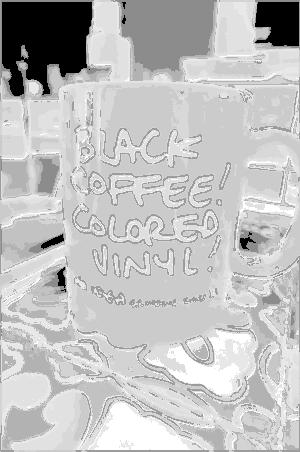 BLACK
COFFEE!
COLORED
VINYL!